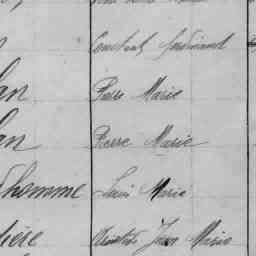 Constant Ferdinand
lan Pierre Marie
lan Pierre Marie
lhomme Louis Marie
ière Jean Marie